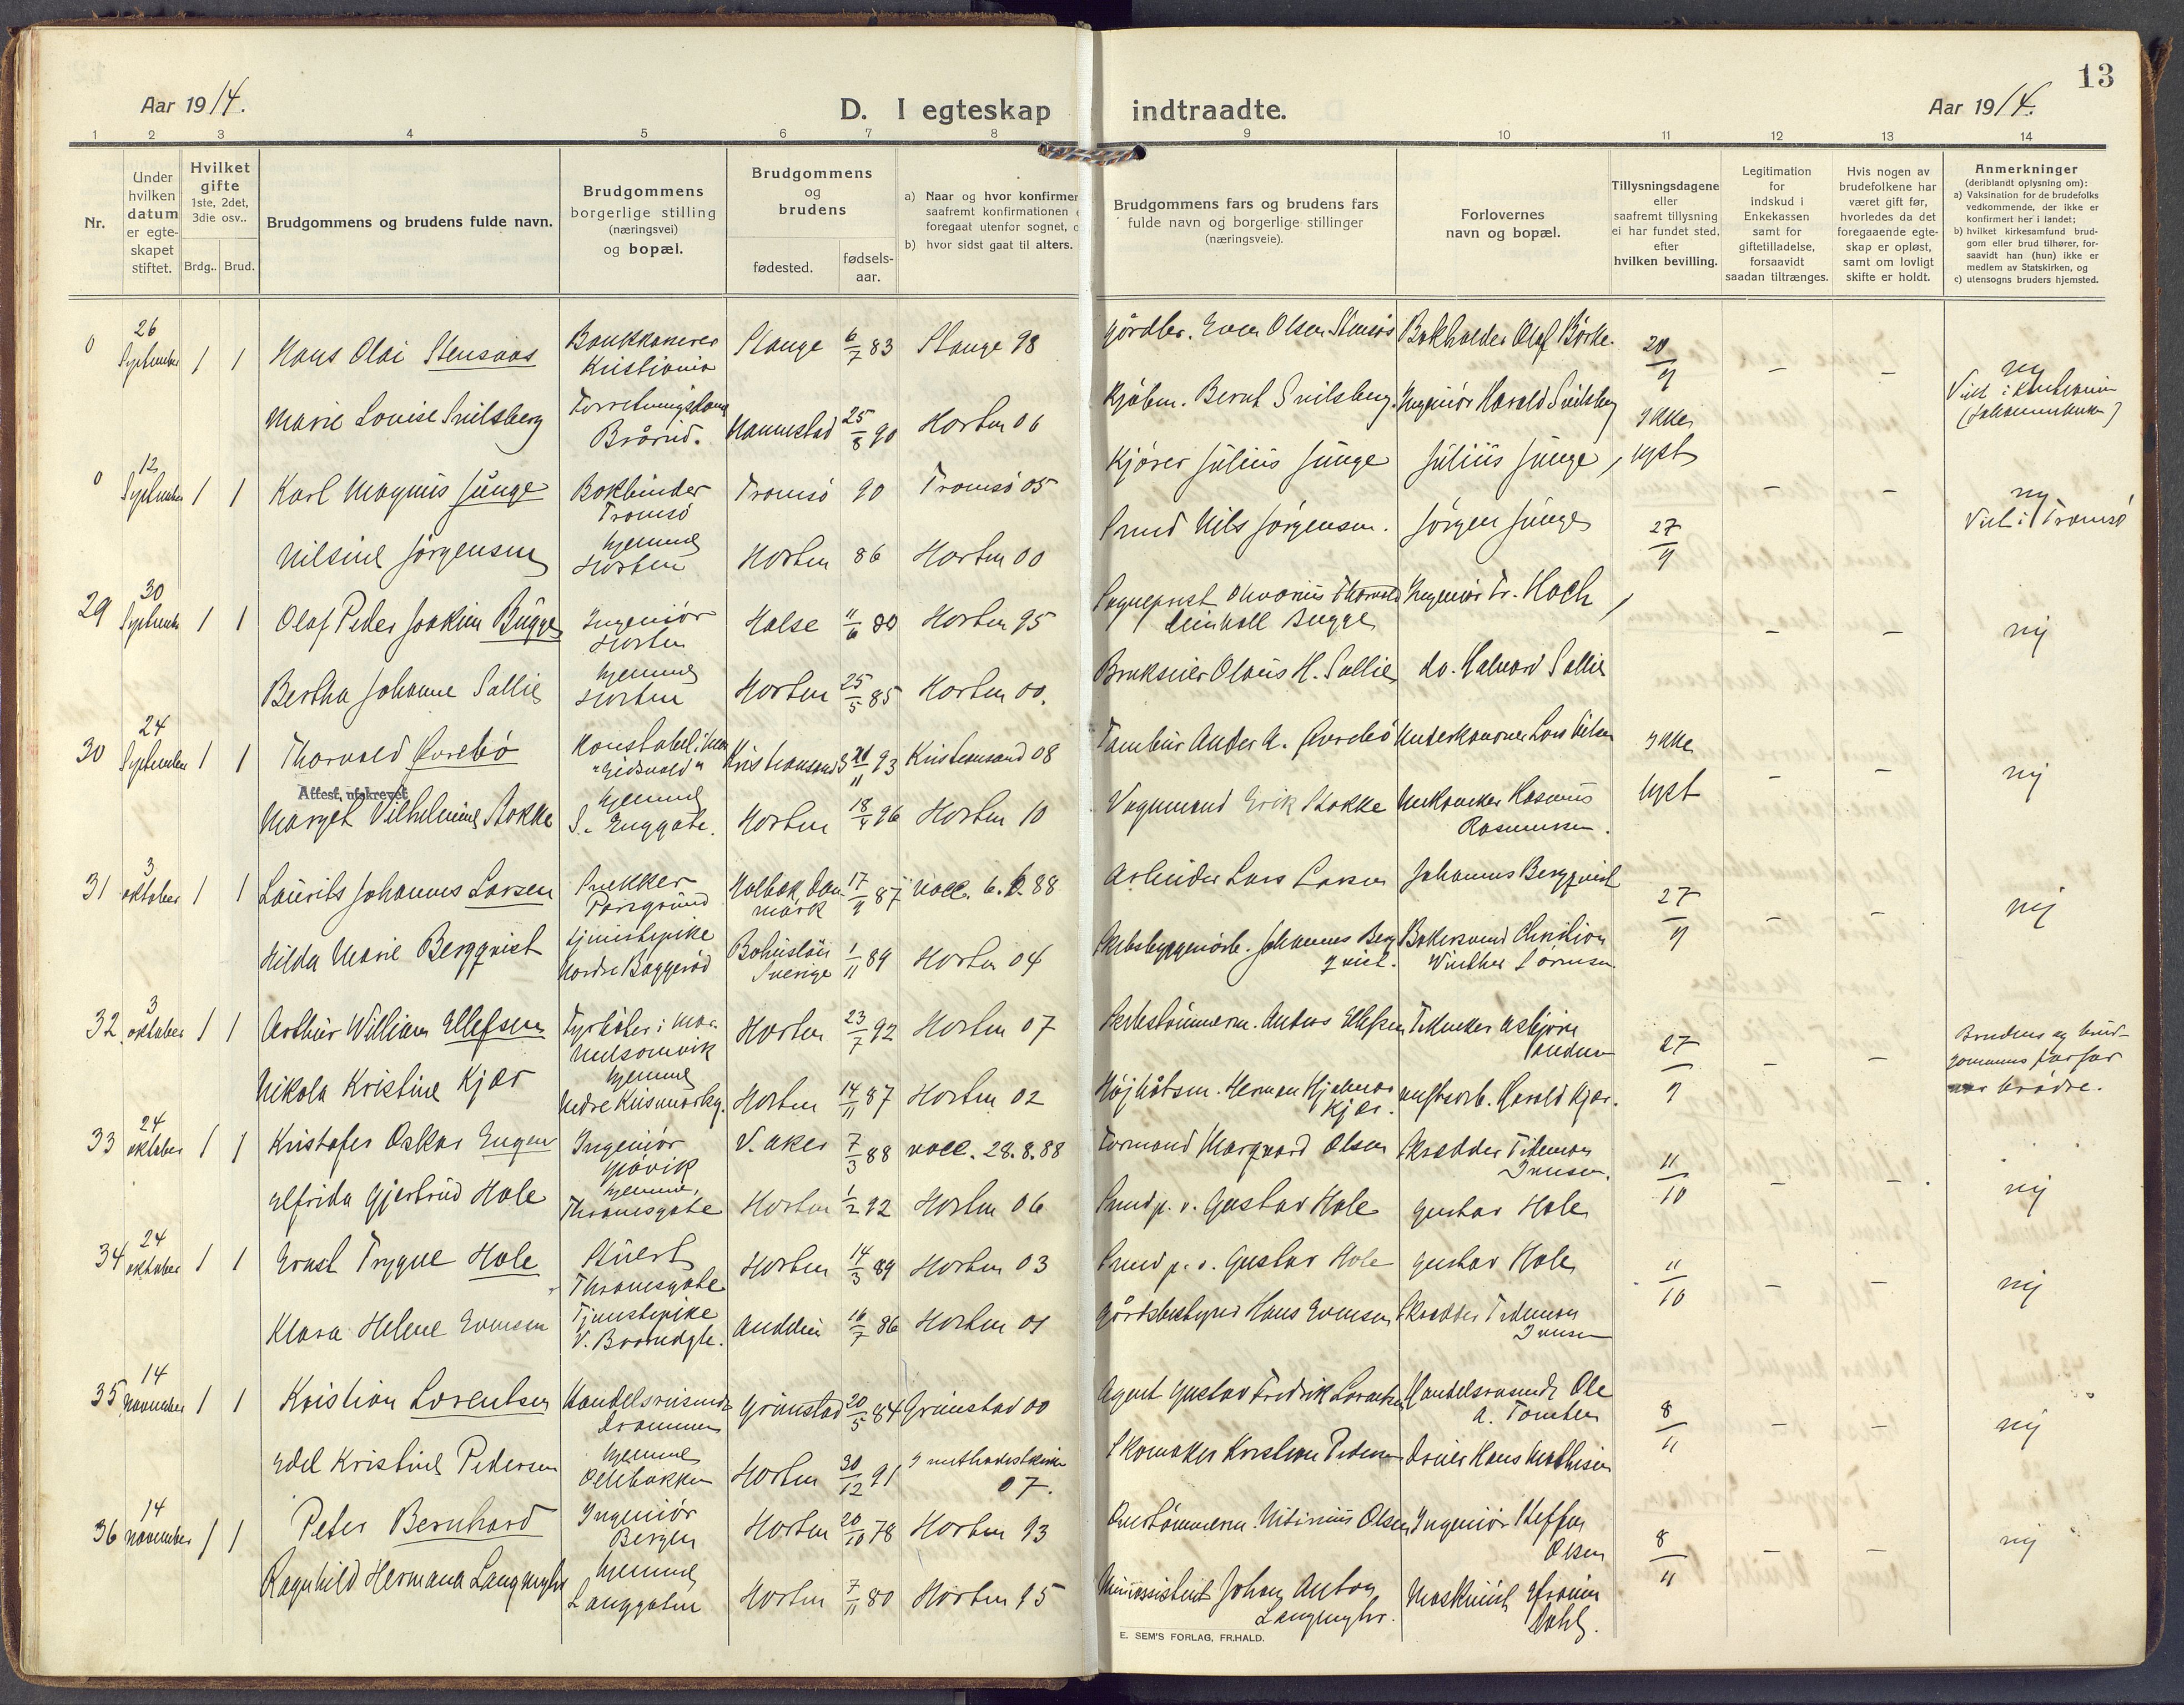 13
Aar 1914.
D. I egteskap indtraadte.
Aar 1914.
1 2 3 4 5 6 7 8 9 10 11 12 13 14
Nr.
Under hvilken datum er egte-skapet stiftet.
Hvilket gifte 1ste, 2det, 3die osv..
Brdg.. Brud.
Brudgommens og brudens fulde navn.
Brudgommens borgerlige stilling (næringsvei) og bopæl.
Brudgommens og brudens
fødested.
fødsels-aar.
a) Naar og hvor konfirmer
saafremt konfirmationen
foregaat utenfor sognet,
b) hvor sidst gaat til alters.
Brudgommens fars og brudens fars
fulde navn og borgerlige stillinger
(næringsveie).
Forlovernes
navn og bopæl.
Tillysningsdagene
eller
saafremt tillysning
ei har fundet sted,
efter
hvilken bevilling.
Legitimation
for
indskud i
Enkekassen
samt for
giftetilladelse,
forsaavidt
saadan tiltrænges.
Hvis nogen av
brudefolkene har
været gift før,
hvorledes da det
foregaaende egte-
skap er opløst,
samt om lovligt
skifte er holdt.
Anmerkninger
(deriblandt oplysning om):
a) Vaksination for de brudefolks
vedkommende, der ikke er
konfirmert her i landet;
b) hvilket kirkesamfund brud-
gom eller brud tilhører, for-
saavidt han (hun) ikke er
medlem av Statskirken, og
c) utensogns bruders hjemsted.
0 26 September 1 1 Hans Olai Stensaas Bankkasserer Kristiania Stange 6/7 83 Stange 98 Gårdbr. Even Olsen Stensås Bokholder Olaf Börke. 20/9 – – nej Viet i Kristiania
Marie Louise Smilsberg Brårud. 25/8 90 Horten 06 Kjøbm. Bernt Smilsberg. Ingeniör Harald Smilsberg
0 12 September 1 1 Karl Magnus Junge Bokbinder Tromsö Tromsö 90 Tromsö 05 Kjörer Julius Junge Julius Junge, Ikke lyst – – nej Viet i Tromsö
Nilsine Jörgensen hjemme Horten Horten 86 Horten 00 Smed Nils Jörgensen. Jörgen Junge
29 30 September 1 1 Olaf Peder Joakim Bugge Ingeniör Horten Halse 11/6 80 Horten 95 Sogneprest Bugge Ingeniör Fr. Hoch, 27/9 – – nej
Bertha Johanne Sollie hjemme Horten Horten 25/5 85 Horten 00. Brukseier Olaus H. Sollie do. Halvard Sollie
30 24 September 1 1 Thorvald Øvrebö Konstabel "Eidsvold" Kristiansand S 93 Kristiansand 08 Tambur Anders A. Øvrebö Underkanoner Lars Nilsen Ikke lyst – – nej
Attest, utskrevet
Marget Vilhelmine Stokke hjemme S. Enggate. Horten 18/4 96 Horten 10 Vognmand Erik Stokke Rasmus Rasmussen.
31 3 oktober 1 1 Laurits Johannes Larsen Snekker Porsgrund Holbæk, Danmark 17/9 87 vacc. 6. 6. 88 Arbeider Lars Larsen Johannes Bergqvist 27/9 – – nej
Hilda Marie Bergqvist tjenestepike Nordre Baggeröd Bohuslän Sverige 1/11 89 Horten 04 Johannes Bergqvist. Bakersvend Christian Winther Sörensen
32 3 oktober 1 1 Arthur William Ellefsen Fyrböter i Mar. Horten 23/7 92 Horten 07 Skibstömmerm. Anders Ellefsen Asbjörn 27/9 – – Brudens og brudgommens farfar var brödre.
Nikola Kristine Kjær hjemme Horten 14/11 87 Horten 02 Herman Hjalmar Kjær. Harald Kjær.
33 24 oktober 1 1 Kristofer Oskar Eugen Ingeniör Gjövik V. Aker 7/3 88 vacc. 28.8.88 Formand Marqvard Olsen Skrædder Tideman Ivensen. 11/10 – – nej
Elfrida Gjertrud Hole hjemme, Thranesgate Horten 1/2 92 Horten 06 Smed p. v. Gustav Hole Gustav Hole
34 24 oktober 1 1 Ernst Trygve Hole Stuert Thranesgate Horten 14/3 89 Horten 03 Smed p. v. Gustav Hole Gustav Hole 11/10 – – nej
Klara Helene Evensen Tjenestepike V. Braarudgt. Andebu 16/7 86 Horten 01 Gårdsbestyrer Hans Evensen Skrædder Tideman Ivensen
35 14 November 1 1 Kristian Lorentsen Handelsreisende Drammen Grimstad 20/5 84 Grimstad 00 Agent Gustav Fredrik Lorentsen Handelsreisende Ole A. 8/11 – – nej
Edel Kristine Pedersen hjemme Horten 30/12 91 I methodistkirken 07. Skomaker Kristian Pedersen Dreier Hans Mathisen
36 14 November 1 1 Peter Bernhard Ingeniör Bergen Horten 20/10 78 Horten 93 Olsen Ingeniör Steffen Olsen 8/11 – – nej
Ragnhild Hermana Langmyhr hjemme Langgaten Horten 7/11 80 Horten 95 Johan Anton Langmyhr. Maskinist Dahl.
E. SEM'S FORLAG, FR.HALD.